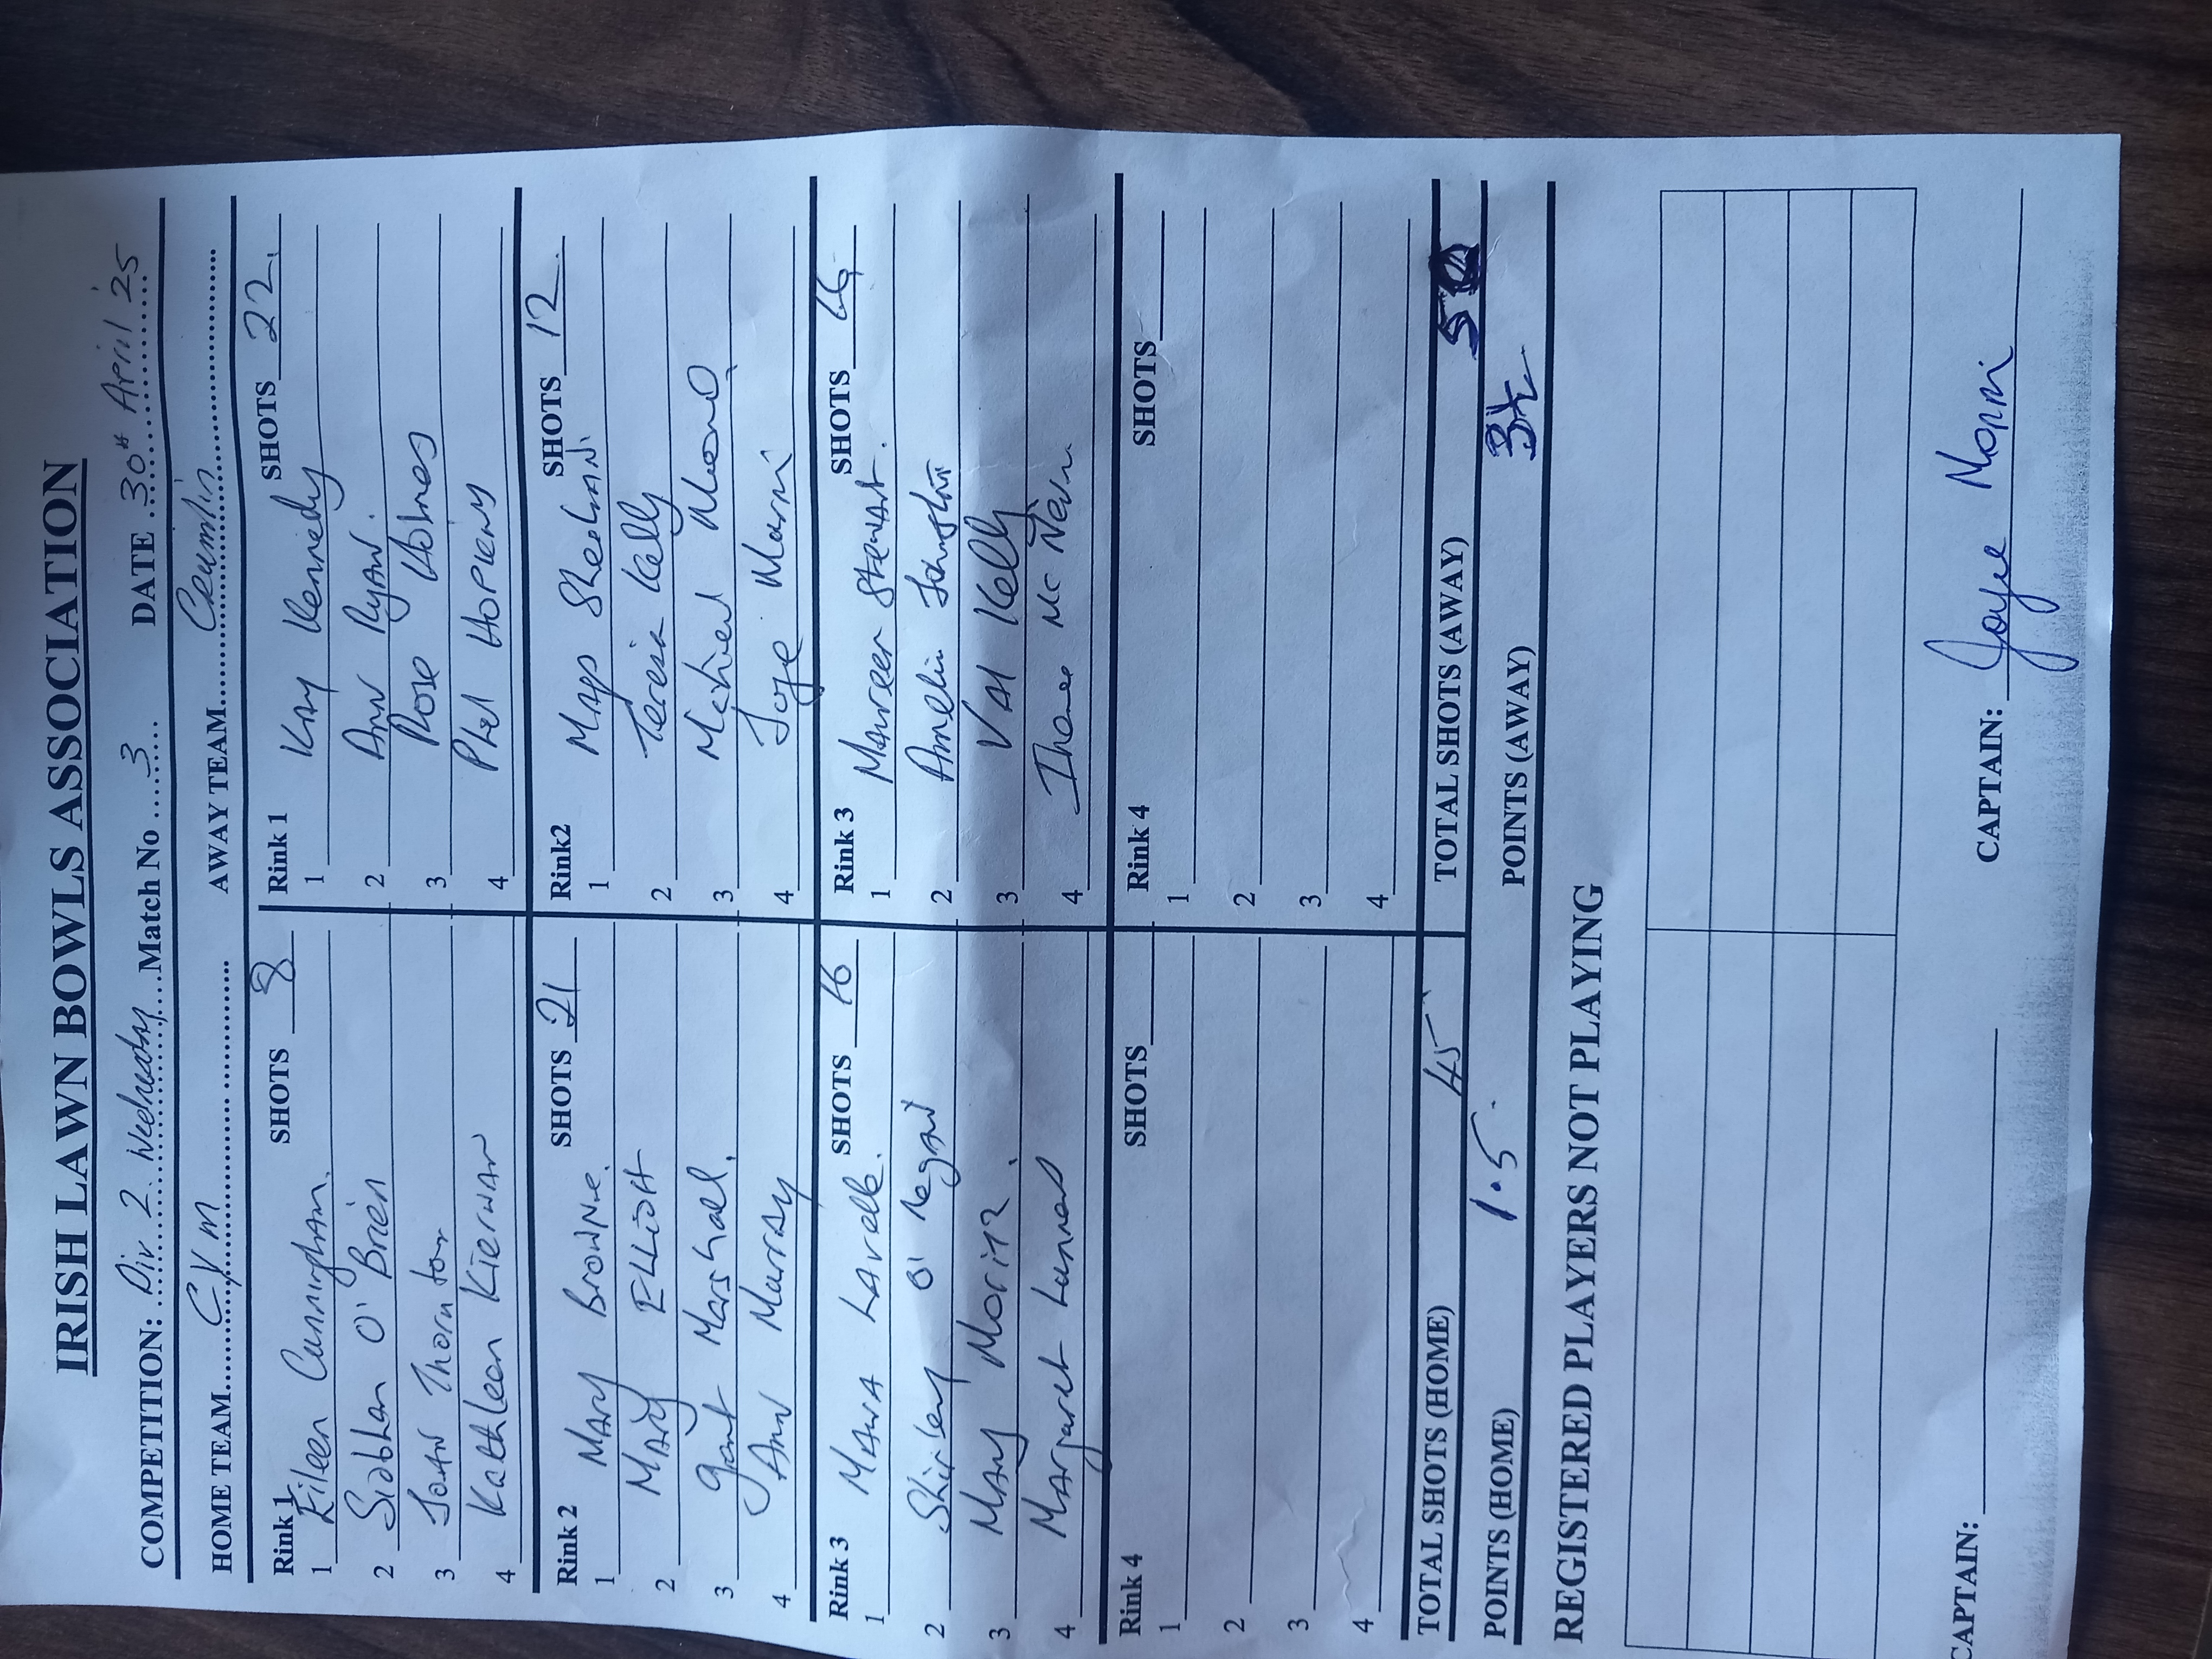 IRISH LAWN BOWLS ASSOCIATION
COMPETITION: Div 2. Wednesday Match No 3 DATE 30th April '25
HOME TEAM C.Y.M AWAY TEAM Crumlin
Rink 1 SHOTS 8
1 Eileen Cunningham.
2 Siobhan O'Brien
3 Joan Thornton
4 Kathleen Kierwan
Rink 1 SHOTS 22
1 Kay Kennedy
2 Ann Ryan
3 Rose Holmes
4 Phil Hopkins
Rink 2 SHOTS 21
1 Mary Browne
2 Mary Elliott
3 Janet Marshael.
4 Ann Murray
Rink2 SHOTS 12
1 Sheehan
2 Teresa Kelly
3
4 Joye
Rink 3 SHOTS 16
1 Lavelle.
2 Shirley O'Regan
3 Mary Moritz.
4 Margaret
Rink 3 SHOTS 16
1 Maureen Stewart.
2 Amelia Johnston
3 Val Kelly
4
Rink 4 SHOTS
1
2
3
4
Rink 4 SHOTS
1
2
3
4
TOTAL SHOTS (HOME) 45 TOTAL SHOTS (AWAY)
POINTS (HOME) 1.5 POINTS (AWAY) 3½
REGISTERED PLAYERS NOT PLAYING
CAPTAIN: CAPTAIN: Joye